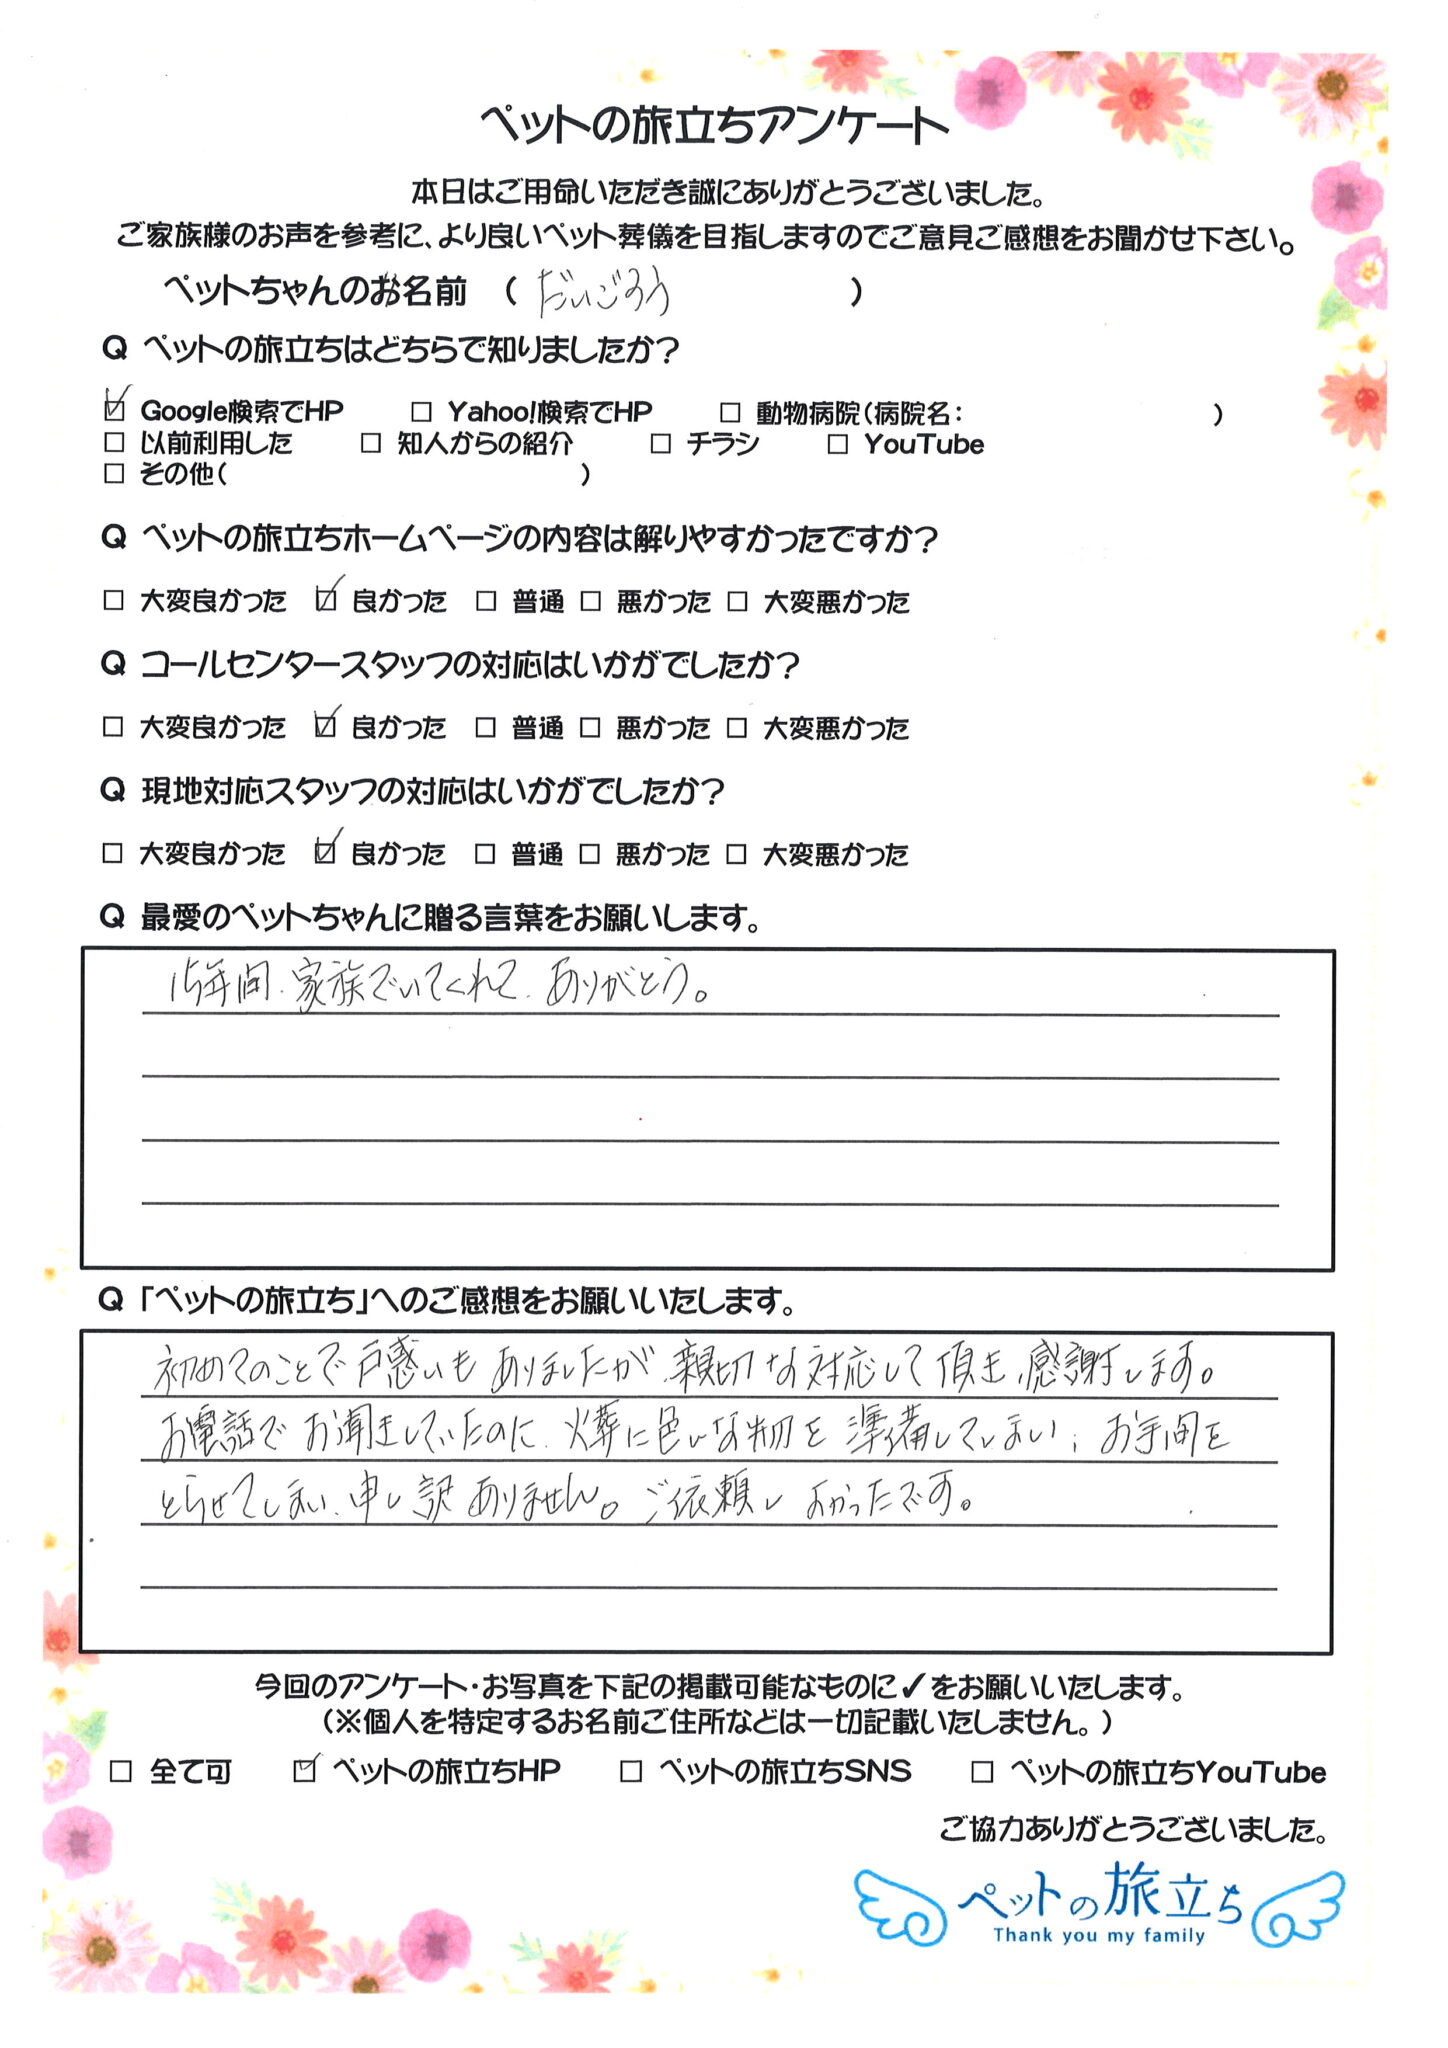 ペットの旅立ちアンケート
本日はご用命いただき誠にありがとうございました。
ご家族様のお声を参考に、より良いペット葬儀を目指しますのでご意見ご感想をお聞かせ下さい。
ペットちゃんのお名前 ( だいごろう )
Q ペットの旅立ちはどちらで知りましたか?
☑ Google検索でHP □ Yahoo!検索でHP □ 動物病院(病院名: )
□ 以前利用した □ 知人からの紹介 □ チラシ □ YouTube
□ その他( )
Q ペットの旅立ちホームページの内容は解りやすかったですか?
□ 大変良かった ☑ 良かった □ 普通 □ 悪かった □ 大変悪かった
Q コールセンタースタッフの対応はいかがでしたか?
□ 大変良かった ☑ 良かった □ 普通 □ 悪かった □ 大変悪かった
Q 現地対応スタッフの対応はいかがでしたか?
□ 大変良かった ☑ 良かった □ 普通 □ 悪かった □ 大変悪かった
Q 最愛のペットちゃんに贈る言葉をお願いします。
15年間、家族でいてくれて、ありがとう。
Q 「ペットの旅立ち」へのご感想をお願いいたします。
初めてのことで戸惑いもありましたが、親切な対応して頂き、感謝します。
お電話でお聞きしていたのに、火葬に色んな物を準備してしまい、お手間を
とらせてしまい、申し訳ありません。ご依頼しよかったです。
今回のアンケート・お写真を下記の掲載可能なものに✓をお願いいたします。
(※個人を特定するお名前ご住所などは一切記載いたしません。)
□ 全て可 ☑ ペットの旅立ちHP □ ペットの旅立ちSNS □ ペットの旅立ちYouTube
ご協力ありがとうございました。
ペットの旅立ち
Thank you my family